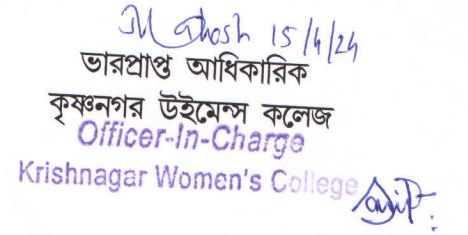 M Ghosh 15/4/24
ভারপ্রাপ্ত আধিকারিক
কৃষ্ণনগর উইমেন্স কলেজ
Officer-In-Charge
Krishnagar Women's College